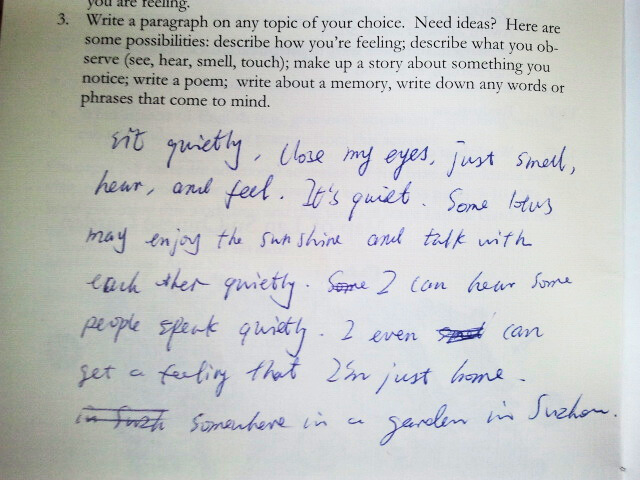 you are feeling.
3. Write a paragraph on any topic of your choice. Need ideas? Here are
some possibilities: describe how you're feeling; describe what you ob-
serve (see, hear, smell, touch); make up a story about something you
notice; write a poem; write about a memory, write down any words or
phrases that come to mind.
sit quietly, close my eyes, just smell,
hear, and feel. It's quiet. Some lotus
may enjoy the sunshine and talk with
each other quietly. Some I can hear some
people speak quietly. I even can
get a feeling that I'm just home.
in Suzh Somewhere in a garden in Suzhou.